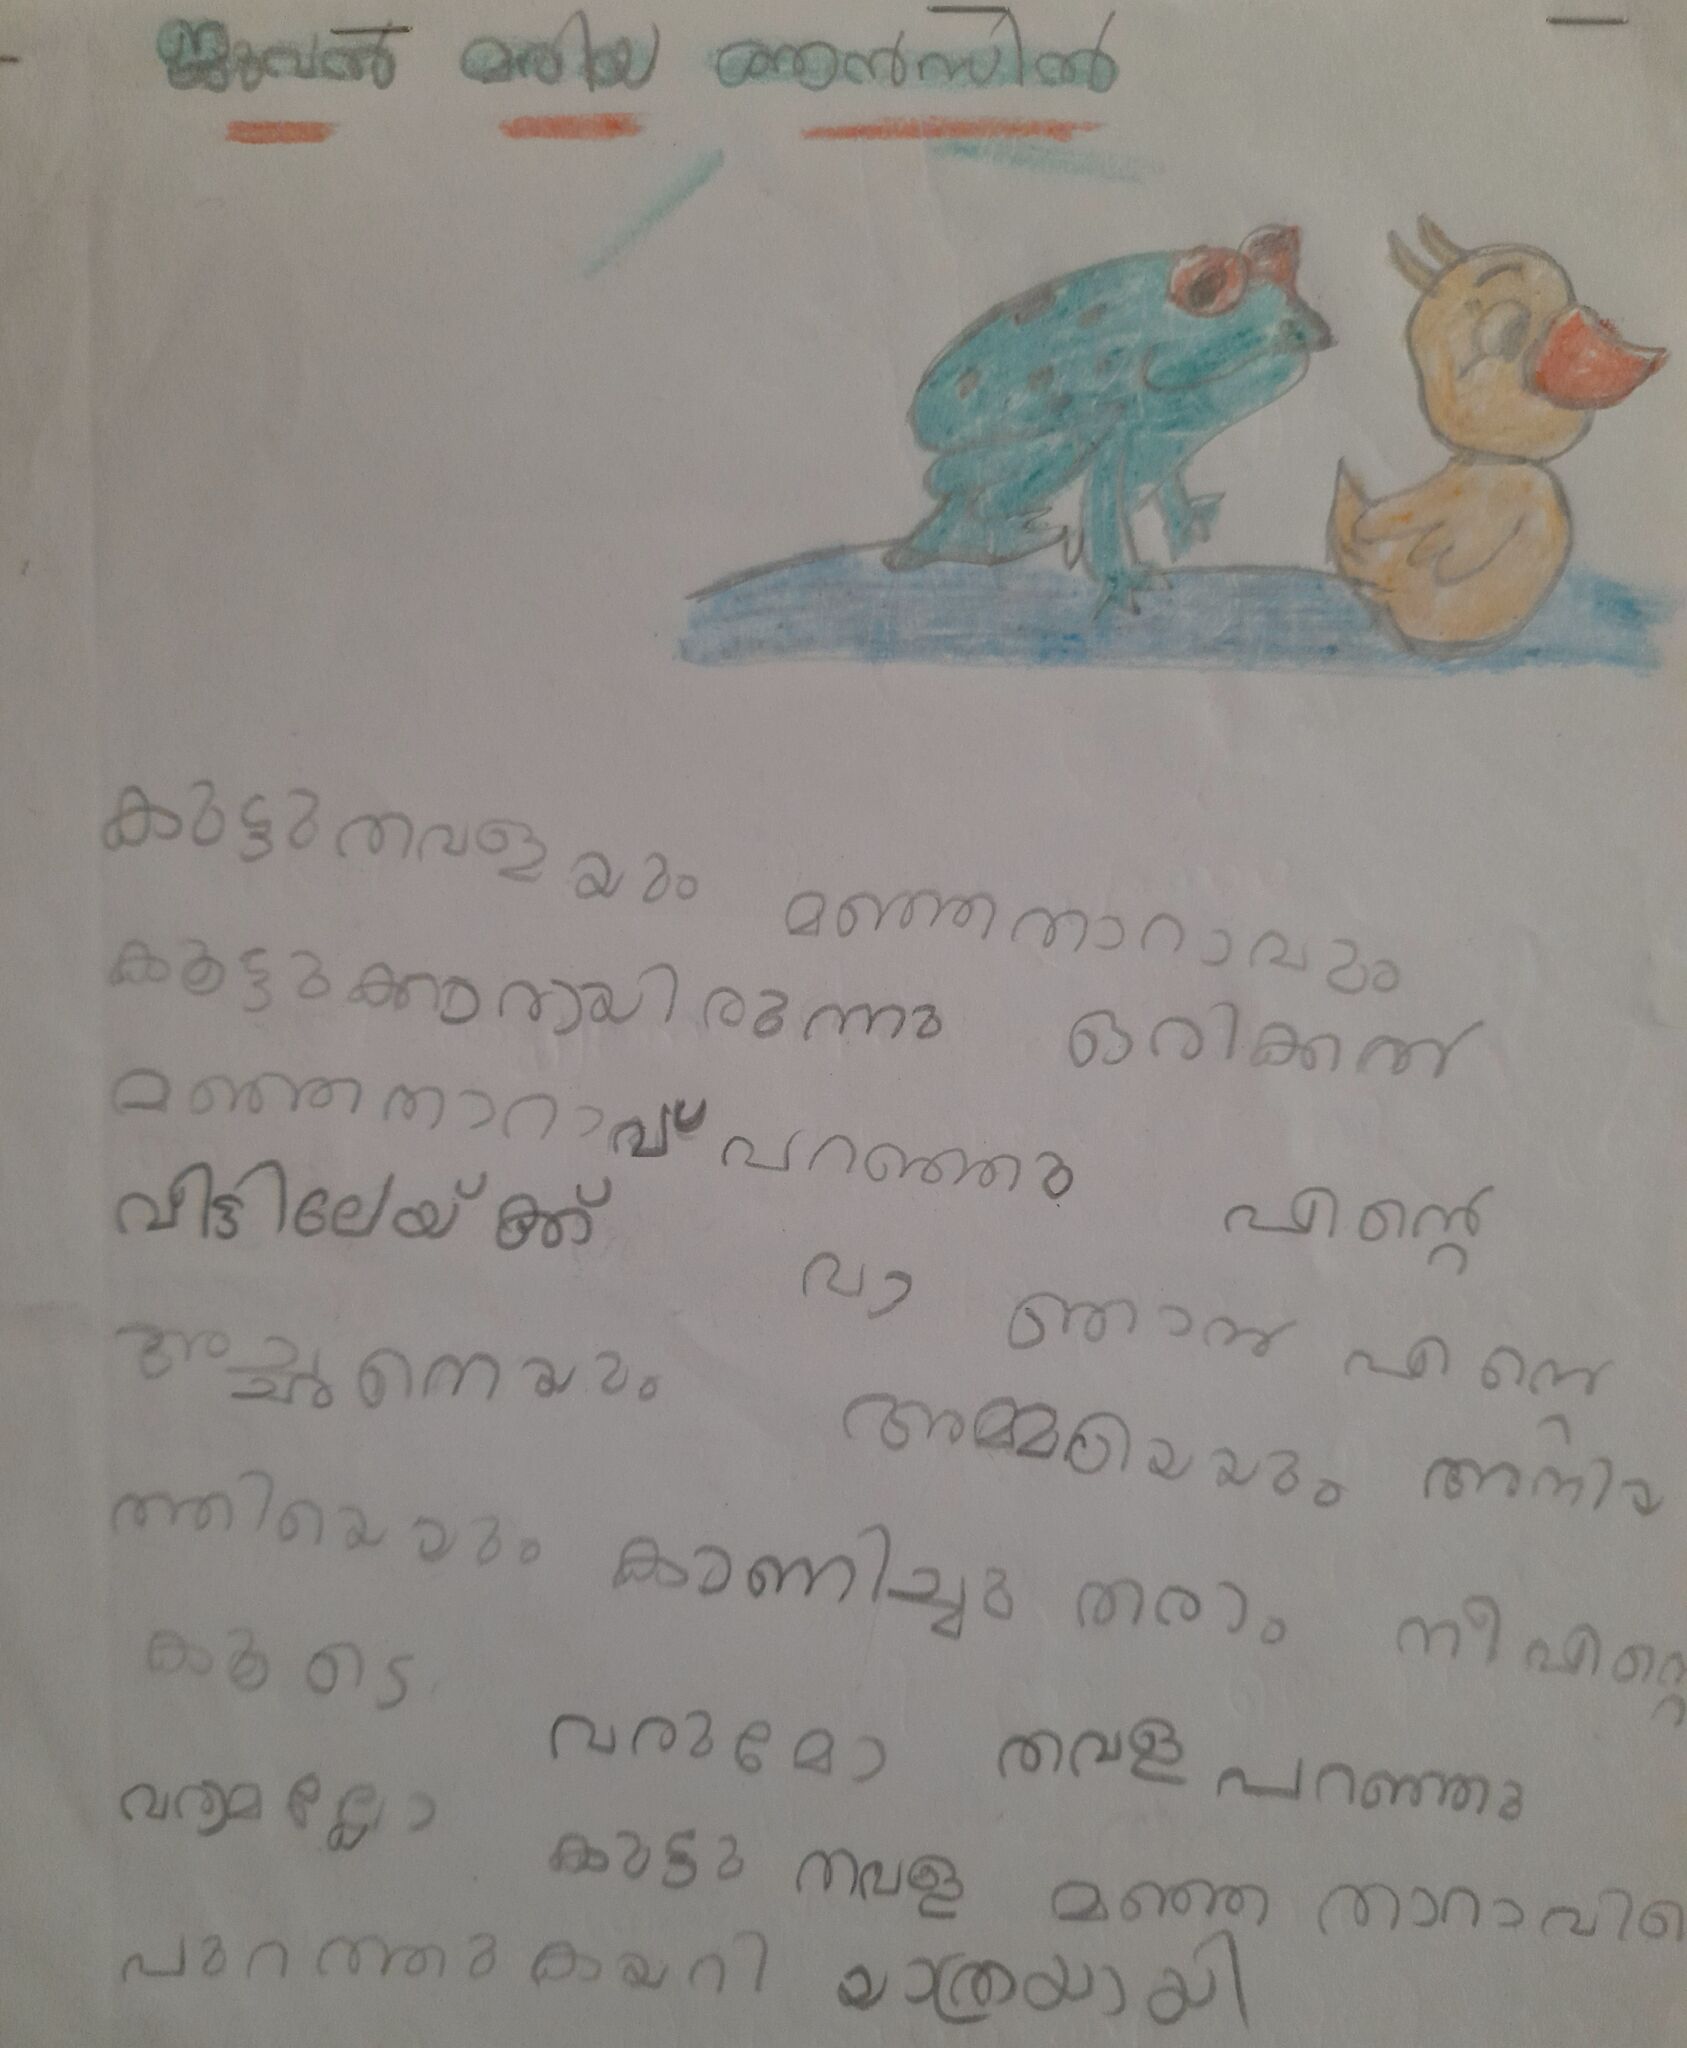 ജുവൽ മരിയ ആൻസിൽ
കുട്ടുതവളയും മഞ്ഞതാറാവും
കൂട്ടുക്കാരായിരുന്നു ഒരിക്കൽ
മഞ്ഞതാറാവ് പറഞ്ഞു എന്റെ
വീട്ടിലേയ്ക്ക് വാ ഞാൻ എന്റെ
അച്ഛനെയും അമ്മയെയും അനിയ
ത്തിയെയും കാണിച്ചു തരാം നീ എന്റെ
കൂടെ വരുമോ തവള പറഞ്ഞു
വരുമല്ലോ കുട്ടു തവള മഞ്ഞ താറാവിന്റെ
പുറത്തു കയറി യാത്രയായി